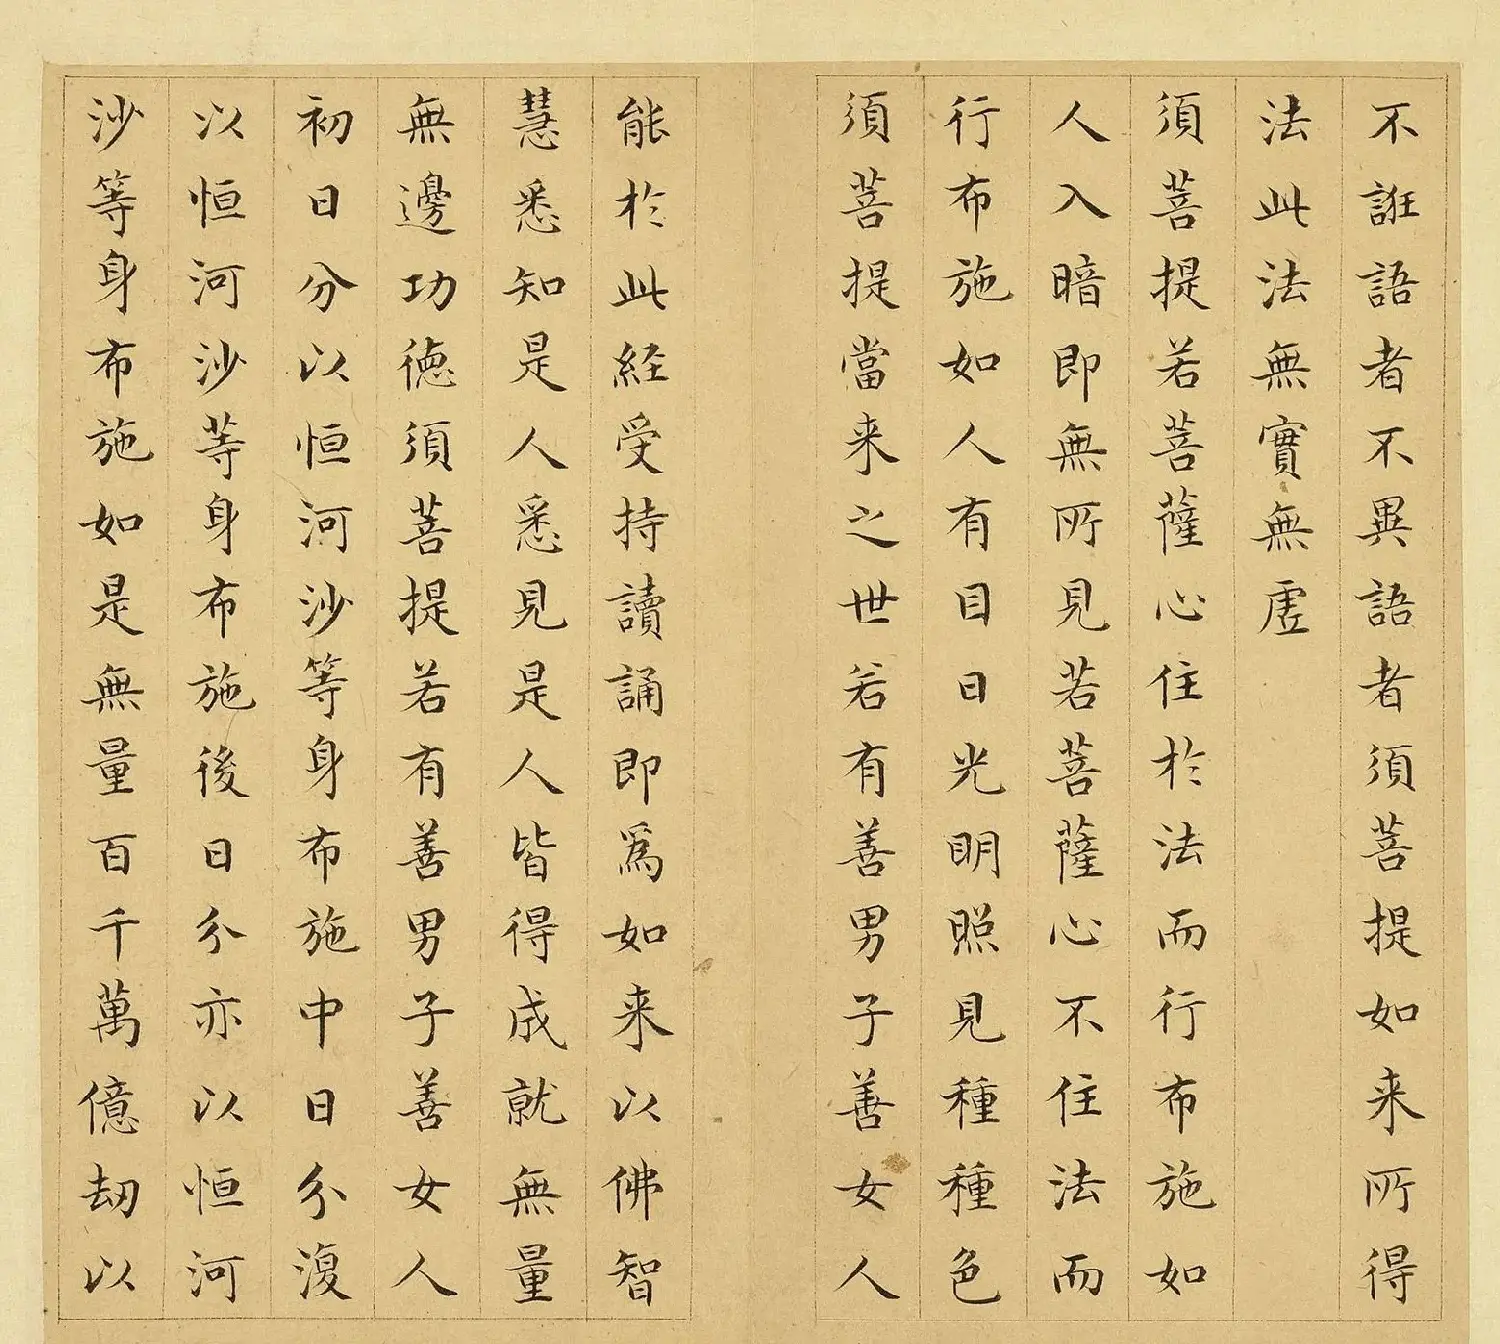 不誑語者不異語者須菩提如来所得
法此法無實無虗
須菩提若菩薩心住於法而行布施如
人入暗即無所見若菩薩心不住法而
行布施如人有目日光明照見種種色
須菩提當来之世若有善男子善女人
能於此経受持讀誦即為如来以佛智
慧悉知是人悉見是人皆得成就無量
無邊功徳須菩提若有善男子善女人
初日分以恒河沙等身布施中日分復
以恒河沙等身布施後日分亦以恒河
沙等身布施如是無量百千萬億劫以